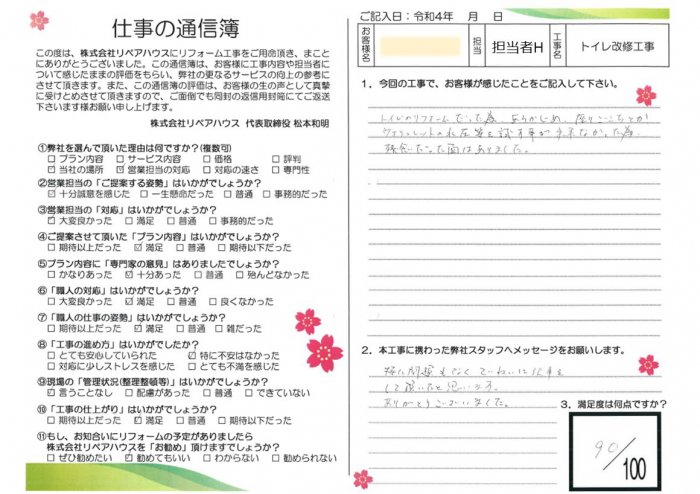 仕事の通信簿
この度は、株式会社リペアハウスにリフォーム工事をご用命頂き、まこと
にありがとうございました。この通信簿は、お客様に工事内容や担当者に
ついて感じたままの評価をもらい、弊社の更なるサービスの向上の参考に
させて頂きます。また、この通信簿の評価は、お客様の生の声として真摯
に受けとめさせて頂きますので、ご面倒でも同封の返信用封筒にてご返送
下さいます様お願い申し上げます。
株式会社リペアハウス 代表取締役 松本和明
①弊社を選んで頂いた理由は何ですか?(複数可)
□プラン内容 □サービス内容 □価格 □評判
☑当社の場所 ☑営業担当の対応 □対応の速さ □専門性
②営業担当の「ご提案する姿勢」はいかがでしょうか?
☑十分誠意を感じた □一生懸命だった □普通 □事務的だった
③営業担当の「対応」はいかがでしょうか?
☑大変良かった □満足 □普通 □事務的だった
④ご提案させて頂いた「プラン内容」はいかがでしょうか?
□期待以上だった ☑満足 □普通 □期待以下だった
⑤プラン内容に「専門家の意見」はありましたでしょうか?
□かなりあった ☑十分あった □普通 □殆んどなかった
⑥「職人の対応」はいかがでしょうか?
□大変良かった ☑満足 □普通 □良くなかった
⑦「職人の仕事の姿勢」はいかがでしょうか?
□期待以上だった ☑満足 □普通 □雑だった
⑧「工事の進め方」はいかがでしたか?
□とても安心していられた ☑特に不安はなかった
□対応に少しストレスを感じた □とても不満を感じた
⑨現場の「管理状況(整理整頓等)」はいかがでしょうか?
☑言うことなし □配慮があった □普通 □できていない
⑩「工事の仕上がり」はいかがでしょうか?
□期待以上だった ☑満足 □普通 □期待以下だった
⑪もし、お知合いにリフォームの予定がありましたら
株式会社リペアハウスを「お勧め」頂けますでしょうか?
□ぜひ勧めたい ☑勧めてもいい □わからない □勧められない
ご記入日:令和4年 月 日
お客様名
担当
担当者H
工事名
トイレ改修工事
1.今回の工事で、お客様が感じたことをご記入して下さい。
トイレのリフォームだった為、あらかじめ、座りごこちとか
ウォシュレットの水圧等を試す事が出来なかった為、
残念だった面はありました。
2.本工事に携わった弊社スタッフへメッセージをお願いします。
特に問題もなく ていねいに仕事を
して頂いたと思います。
ありがとうございました。
3.満足度は何点ですか?
90/100